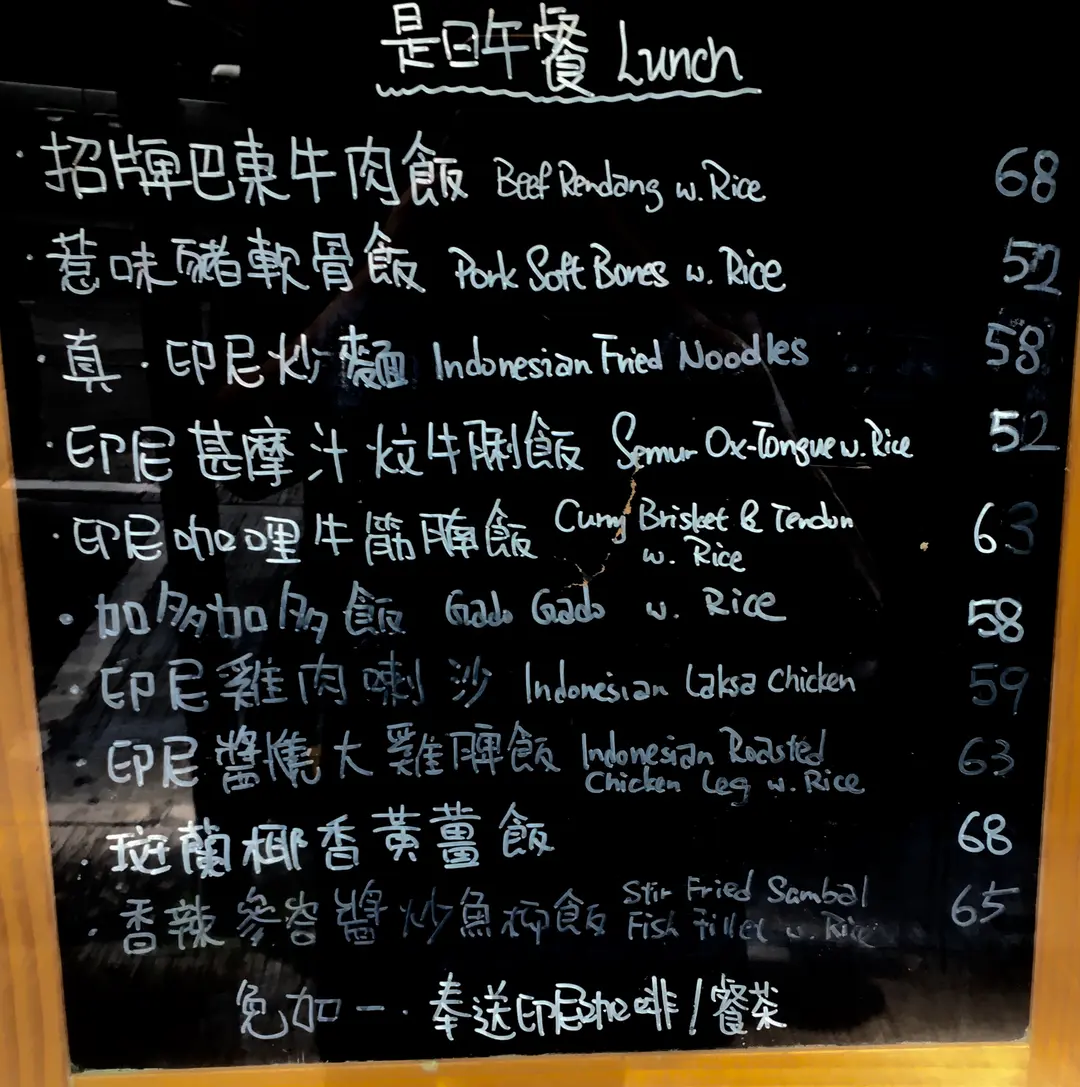 是日午餐 Lunch
· 招牌巴東牛肉飯 Beef Rendang w. Rice 68
· 惹味豬軟骨飯 Pork Soft Bones w. Rice 52
· 真·印尼炒麵 Indonesian Fried Noodles 58
· 印尼甚摩汁炆牛脷飯 Semur Ox-Tongue w. Rice 52
· 印尼咖喱牛筋腩飯 Curry Brisket & Tendon
w. Rice 63
· 加多加多飯 Gado Gado w. Rice 58
· 印尼雞肉喇沙 Indonesian Laksa Chicken 59
· 印尼醬燒大雞髀飯 Indonesian Roasted
Chicken Leg w. Rice 63
· 斑蘭椰香黃薑飯 68
· 香辣參峇醬炒魚柳飯 Stir Fried Sambal
Fish Fillet w. Rice 65
免加一·奉送印尼咖啡/餐茶